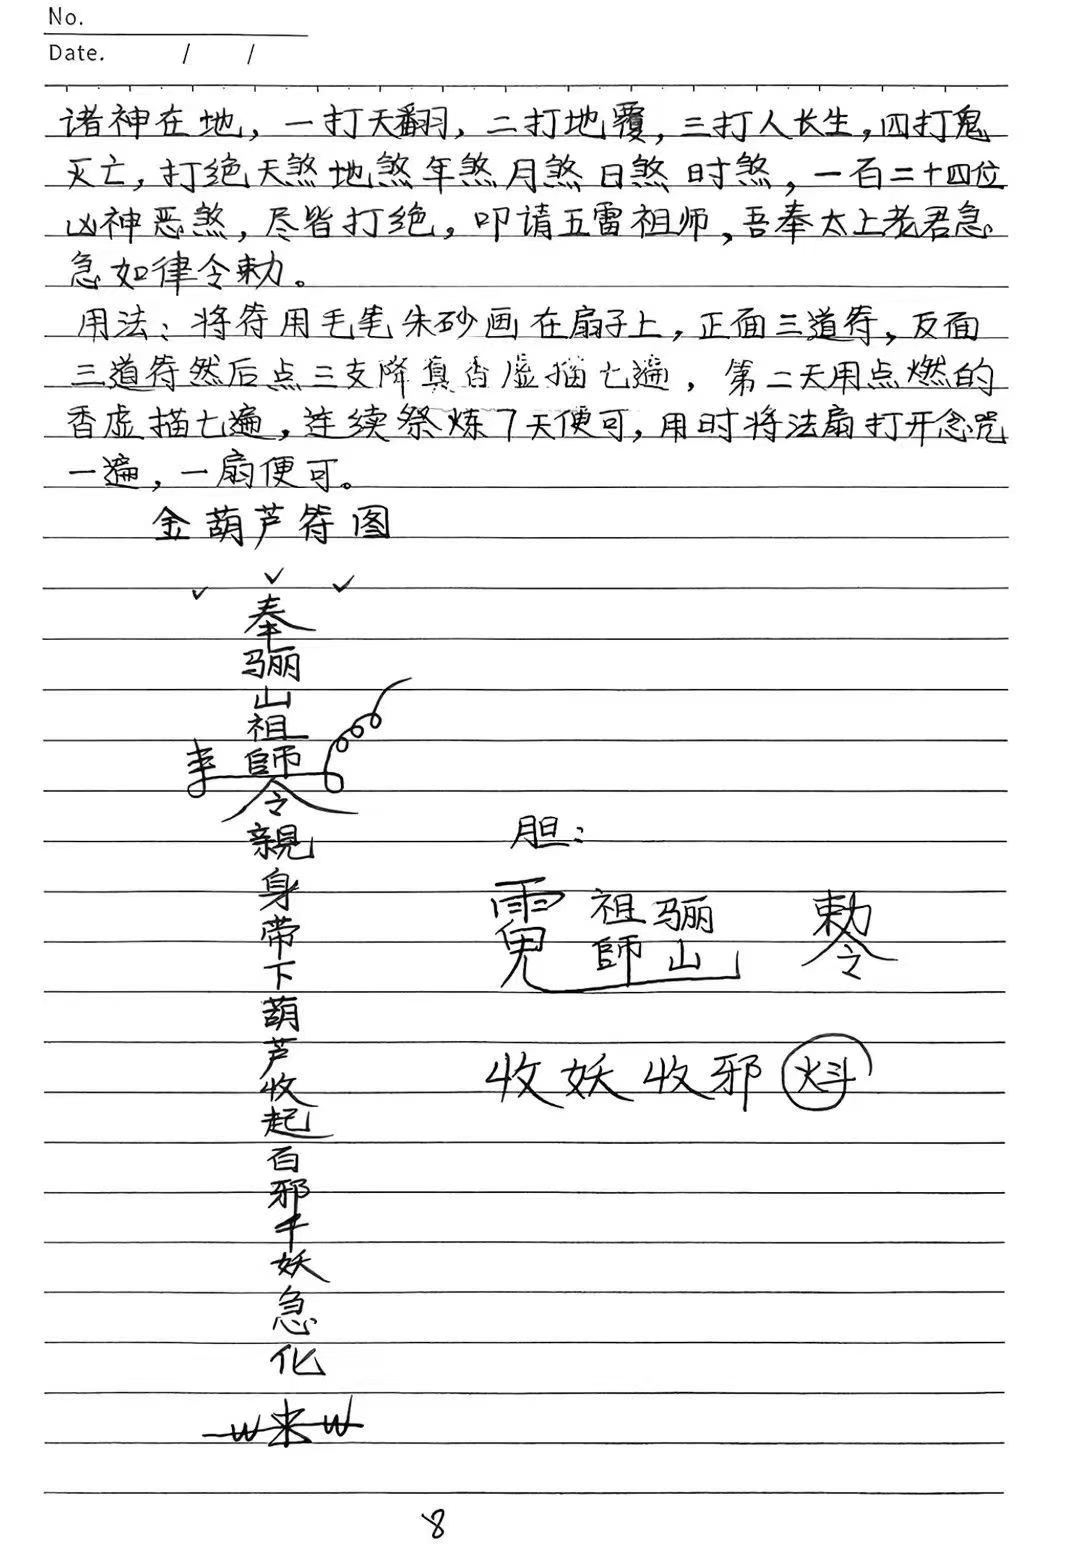 No.
Date. / /
诸神在地，一打天翻，二打地覆，三打人长生，四打鬼
灭亡，打绝天煞地煞年煞月煞日煞时煞，一百二十四位
凶神恶煞，尽皆打绝，叩请五雷祖师，吾奉太上老君急
急如律令勅。
用法：将符用毛笔朱砂画在扇子上，正面三道符，反面
三道符然后点三支降真香虚描七遍，第二天用点燃的
香虚描七遍，连续祭炼7天便可，用时将法扇打开念咒
一遍，一扇便可。
金葫芦符图
奉
骊
山
祖
師
令
親
身
带
下
葫
芦
收
起
百
邪
千
妖
急
化
来
胆：
祖骊 勅
師山 令
收妖收邪
8